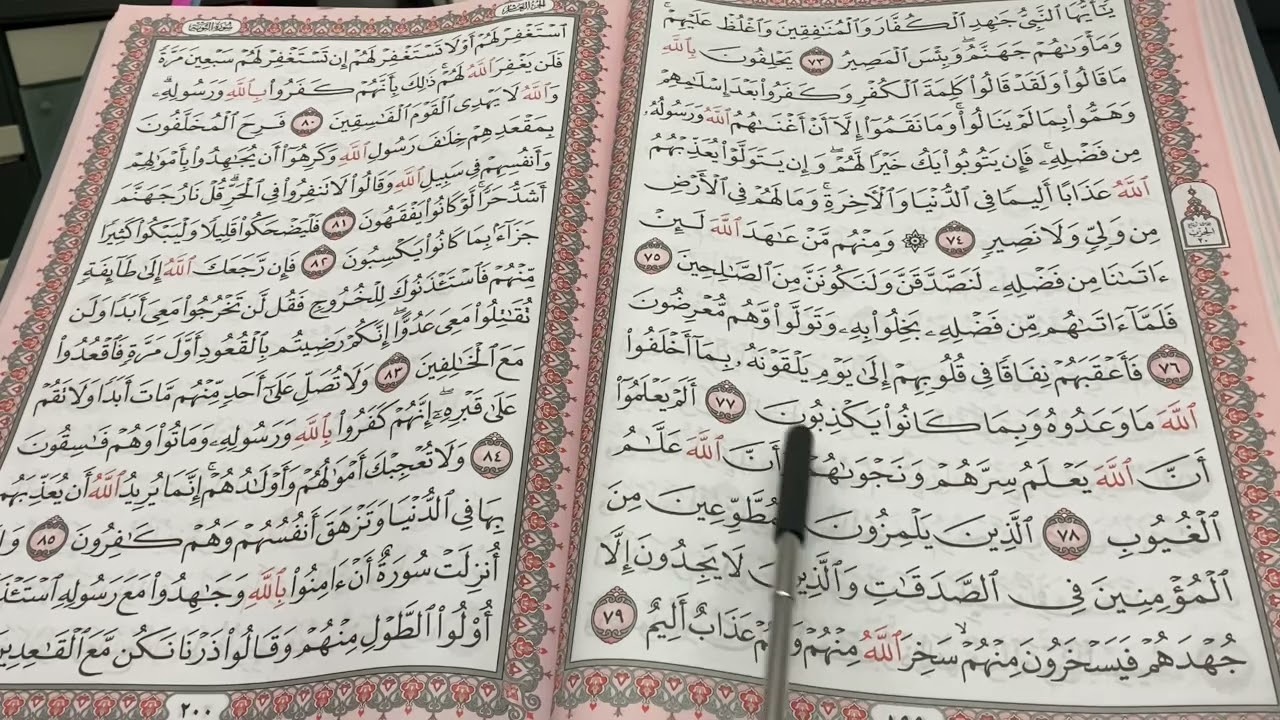 يَٰٓأَيُّهَا ٱلنَّبِيُّ جَٰهِدِ ٱلْكُفَّارَ وَٱلْمُنَٰفِقِينَ وَٱغْلُظْ عَلَيْهِمْ ۚ
وَمَأْوَىٰهُمْ جَهَنَّمُ ۖ وَبِئْسَ ٱلْمَصِيرُ ٧٣ يَحْلِفُونَ بِٱللَّهِ
مَا قَالُوا۟ وَلَقَدْ قَالُوا۟ كَلِمَةَ ٱلْكُفْرِ وَكَفَرُوا۟ بَعْدَ إِسْلَٰمِهِمْ
وَهَمُّوا۟ بِمَا لَمْ يَنَالُوا۟ ۚ وَمَا نَقَمُوٓا۟ إِلَّآ أَنْ أَغْنَىٰهُمُ ٱللَّهُ وَرَسُولُهُۥ
مِن فَضْلِهِۦ ۚ فَإِن يَتُوبُوا۟ يَكُ خَيْرًا لَّهُمْ ۖ وَإِن يَتَوَلَّوْا۟ يُعَذِّبْهُمُ
ٱللَّهُ عَذَابًا أَلِيمًا فِى ٱلدُّنْيَا وَٱلْءَاخِرَةِ ۚ وَمَا لَهُمْ فِى ٱلْأَرْضِ
مِن وَلِىٍّ وَلَا نَصِيرٍ ٧٤ ۞ وَمِنْهُم مَّنْ عَٰهَدَ ٱللَّهَ لَئِنْ
ءَاتَىٰنَا مِن فَضْلِهِۦ لَنَصَّدَّقَنَّ وَلَنَكُونَنَّ مِنَ ٱلصَّٰلِحِينَ ٧٥
فَلَمَّآ ءَاتَىٰهُم مِّن فَضْلِهِۦ بَخِلُوا۟ بِهِۦ وَتَوَلَّوا۟ وَّهُم مُّعْرِضُونَ
٧٦ فَأَعْقَبَهُمْ نِفَاقًا فِى قُلُوبِهِمْ إِلَىٰ يَوْمِ يَلْقَوْنَهُۥ بِمَآ أَخْلَفُوا۟
ٱللَّهَ مَا وَعَدُوهُ وَبِمَا كَانُوا۟ يَكْذِبُونَ ٧٧ أَلَمْ يَعْلَمُوٓا۟
أَنَّ ٱللَّهَ يَعْلَمُ سِرَّهُمْ وَنَجْوَىٰهُمْ وَأَنَّ ٱللَّهَ عَلَّٰمُ
ٱلْغُيُوبِ ٧٨ ٱلَّذِينَ يَلْمِزُونَ ٱلْمُطَّوِّعِينَ مِنَ
ٱلْمُؤْمِنِينَ فِى ٱلصَّدَقَٰتِ وَٱلَّذِينَ لَا يَجِدُونَ إِلَّا
جُهْدَهُمْ فَيَسْخَرُونَ مِنْهُمْ ۙ سَخِرَ ٱللَّهُ مِنْهُمْ وَلَهُمْ عَذَابٌ أَلِيمٌ ٧٩
سُورَةُ التَّوْبَةِ
ٱسْتَغْفِرْ لَهُمْ أَوْ لَا تَسْتَغْفِرْ لَهُمْ إِن تَسْتَغْفِرْ لَهُمْ سَبْعِينَ مَرَّةً
فَلَن يَغْفِرَ ٱللَّهُ لَهُمْ ۚ ذَٰلِكَ بِأَنَّهُمْ كَفَرُوا۟ بِٱللَّهِ وَرَسُولِهِۦ ۗ
وَٱللَّهُ لَا يَهْدِى ٱلْقَوْمَ ٱلْفَٰسِقِينَ ٨٠ فَرِحَ ٱلْمُخَلَّفُونَ
بِمَقْعَدِهِمْ خِلَٰفَ رَسُولِ ٱللَّهِ وَكَرِهُوٓا۟ أَن يُجَٰهِدُوا۟ بِأَمْوَٰلِهِمْ
وَأَنفُسِهِمْ فِى سَبِيلِ ٱللَّهِ وَقَالُوا۟ لَا تَنفِرُوا۟ فِى ٱلْحَرِّ ۗ قُلْ نَارُ جَهَنَّمَ
أَشَدُّ حَرًّا ۚ لَّوْ كَانُوا۟ يَفْقَهُونَ ٨١ فَلْيَضْحَكُوا۟ قَلِيلًا وَلْيَبْكُوا۟ كَثِيرًا
جَزَآءًۢ بِمَا كَانُوا۟ يَكْسِبُونَ ٨٢ فَإِن رَّجَعَكَ ٱللَّهُ إِلَىٰ طَآئِفَةٍ
مِّنْهُمْ فَٱسْتَـْٔذَنُوكَ لِلْخُرُوجِ فَقُل لَّن تَخْرُجُوا۟ مَعِىَ أَبَدًا وَلَن
تُقَٰتِلُوا۟ مَعِىَ عَدُوًّا ۖ إِنَّكُمْ رَضِيتُم بِٱلْقُعُودِ أَوَّلَ مَرَّةٍ فَٱقْعُدُوا۟
مَعَ ٱلْخَٰلِفِينَ ٨٣ وَلَا تُصَلِّ عَلَىٰٓ أَحَدٍ مِّنْهُم مَّاتَ أَبَدًا وَلَا تَقُمْ
عَلَىٰ قَبْرِهِۦٓ ۖ إِنَّهُمْ كَفَرُوا۟ بِٱللَّهِ وَرَسُولِهِۦ وَمَاتُوا۟ وَهُمْ فَٰسِقُونَ
٨٤ وَلَا تُعْجِبْكَ أَمْوَٰلُهُمْ وَأَوْلَٰدُهُمْ ۚ إِنَّمَا يُرِيدُ ٱللَّهُ أَن يُعَذِّبَهُم
بِهَا فِى ٱلدُّنْيَا وَتَزْهَقَ أَنفُسُهُمْ وَهُمْ كَٰفِرُونَ ٨٥
أُنزِلَتْ سُورَةٌ أَنْ ءَامِنُوا۟ بِٱللَّهِ وَجَٰهِدُوا۟ مَعَ رَسُولِهِ
أُو۟لُوا۟ ٱلطَّوْلِ مِنْهُمْ وَقَالُوا۟ ذَرْنَا نَكُن مَّعَ ٱلْقَٰعِدِينَ
٢٠٠